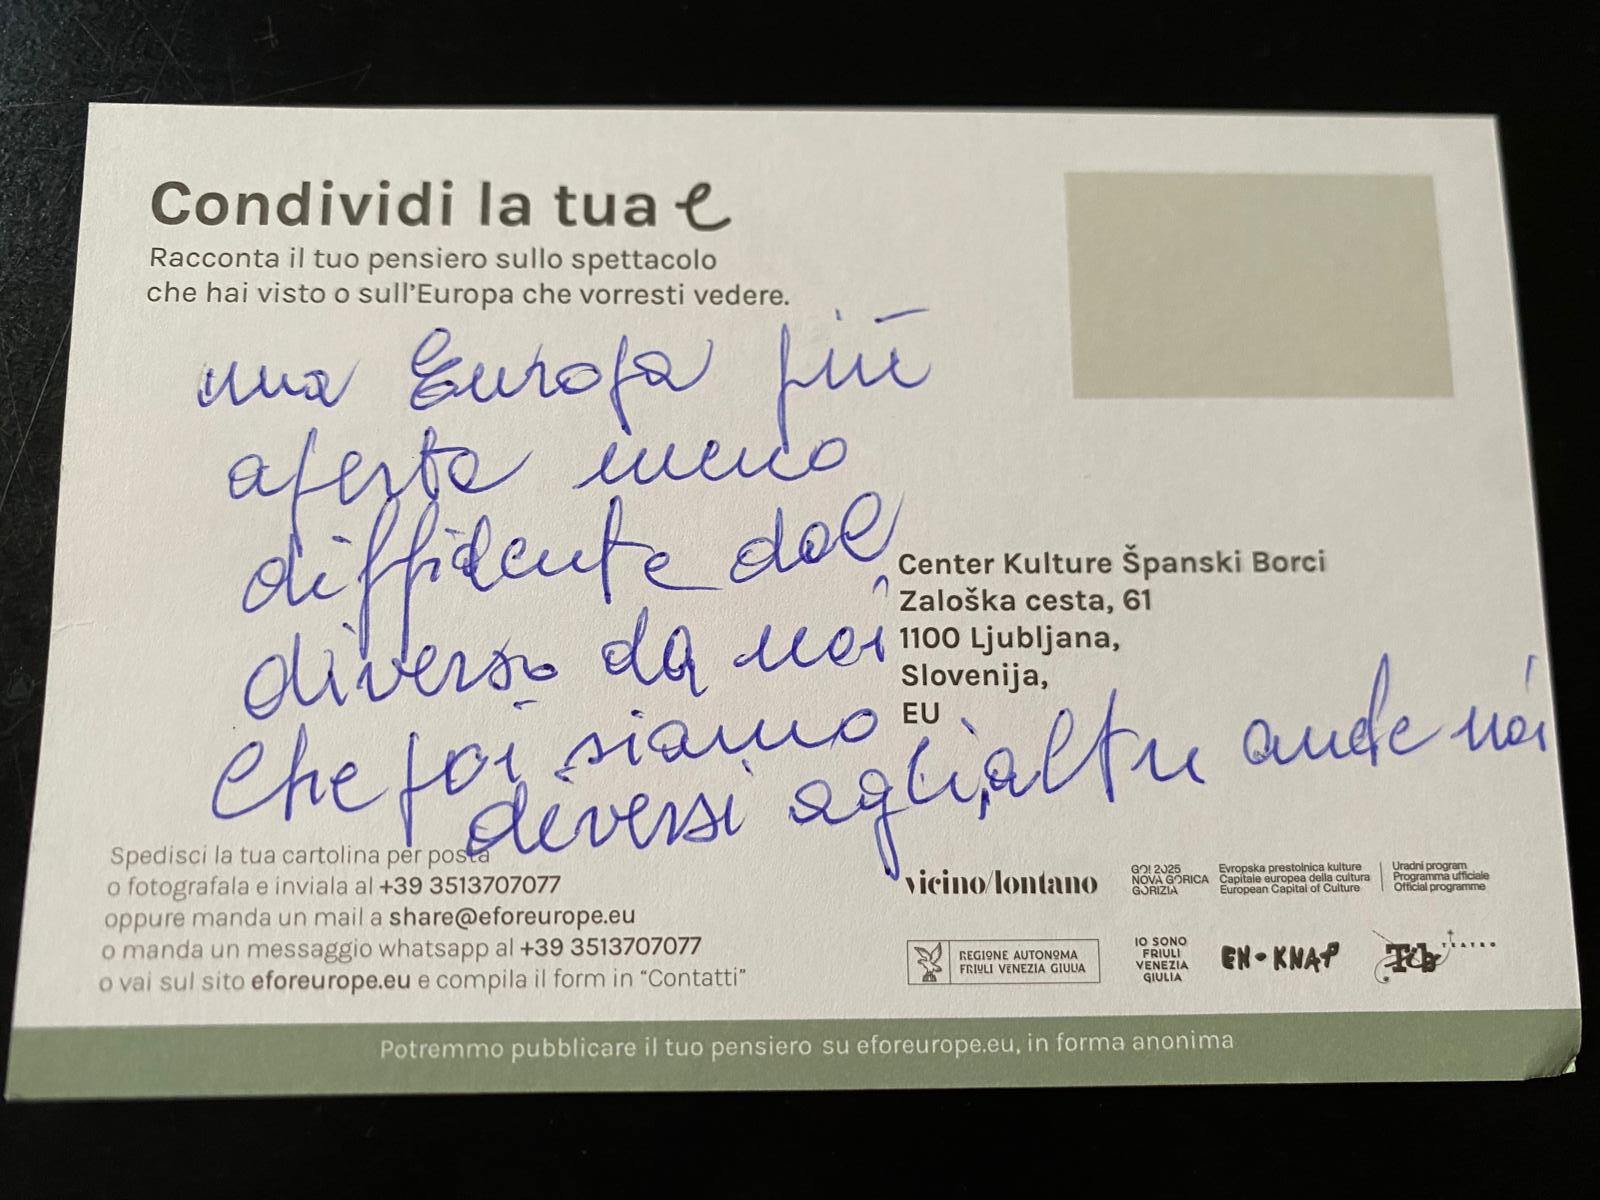 Condividi la tua e
Racconta il tuo pensiero sullo spettacolo
che hai visto o sull'Europa che vorresti vedere.
una Europa più
aperta meno
diffidente dal
diverso da noi
che poi siamo
diversi agli altri anche noi
Center Kulture Španski Borci
Zaloška cesta, 61
1100 Ljubljana,
Slovenija,
EU
Spedisci la tua cartolina per posta
o fotografala e inviala al +39 3513707077
oppure manda un mail a share@eforeurope.eu
o manda un messaggio whatsapp al +39 3513707077
o vai sul sito eforeurope.eu e compila il form in "Contatti"
vicino/lontano
GO! 2025
NOVA GORICA
GORIZIA
Evropska prestolnica kulture
Capitale europea della cultura
European Capital of Culture
Uradni program
Programma ufficiale
Official programme
REGIONE AUTONOMA
FRIULI VENEZIA GIULIA
IO SONO
FRIULI
VENEZIA
GIULIA
EN•KNAP
TEATRO
Potremmo pubblicare il tuo pensiero su eforeurope.eu, in forma anonima